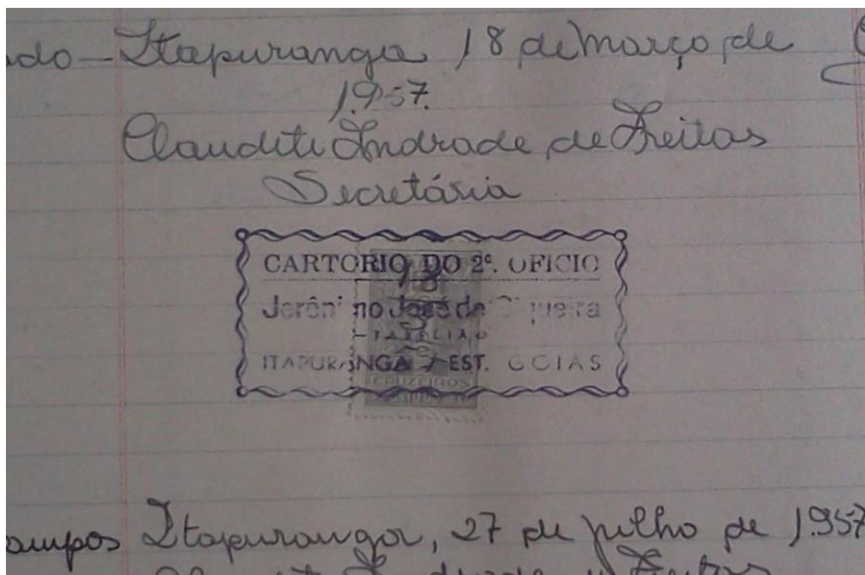 do - Itapuranga 18 de março de
1.957.
Claudite Andrade de Freitas
Secretária
CARTORIO DO 2º. OFICIO
18
Jerôni no José de
3
TABELIÃO
ITAPURANGA - EST. GOIAS
CRUZEIROS
ampos Itapuranga, 27 de julho de 1.957